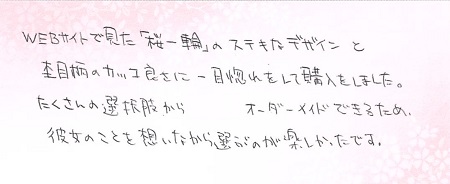 WEBサイトで見た「桜一輪」のステキなデザインと
杢目柄のカッコ良さに一目惚れをして購入をしました。
たくさんの選択肢から オーダーメイドできるため、
彼女のことを想いながら選ぶのが楽しかったです。